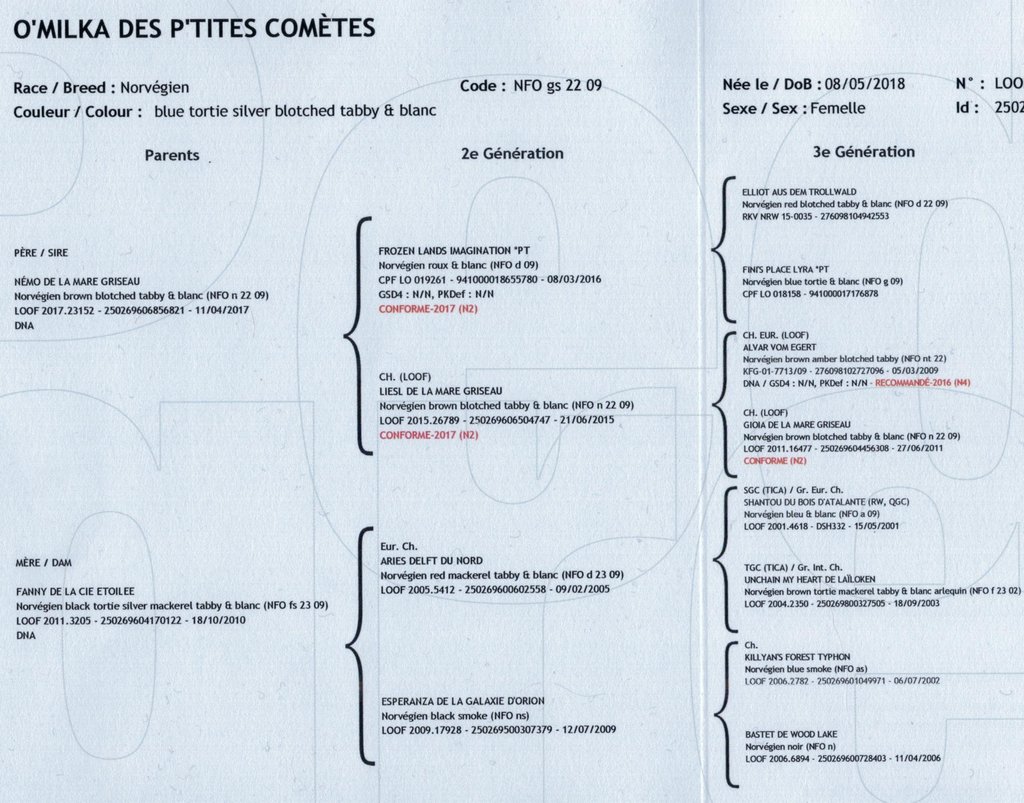 O'MILKA DES P'TITES COMÈTES
Race / Breed : Norvégien
Code : NFO gs 22 09
Née le / DoB : 08/05/2018
N° : LOO
Couleur / Colour : blue tortie silver blotched tabby & blanc
Sexe / Sex : Femelle
Id : 2502
Parents
2e Génération
3e Génération
PÈRE / SIRE
NÉMO DE LA MARE GRISEAU
Norvégien brown blotched tabby & blanc (NFO n 22 09)
LOOF 2017.23152 - 250269606856821 - 11/04/2017
DNA
MÈRE / DAM
FANNY DE LA CIE ETOILEE
Norvégien black tortie silver mackerel tabby & blanc (NFO fs 23 09)
LOOF 2011.3205 - 250269604170122 - 18/10/2010
DNA
FROZEN LANDS IMAGINATION *PT
Norvégien roux & blanc (NFO d 09)
CPF LO 019261 - 941000018655780 - 08/03/2016
GSD4 : N/N, PKDef : N/N
CONFORME-2017 (N2)
CH. (LOOF)
LIESL DE LA MARE GRISEAU
Norvégien brown blotched tabby & blanc (NFO n 22 09)
LOOF 2015.26789 - 250269606504747 - 21/06/2015
CONFORME-2017 (N2)
Eur. Ch.
ARIES DELFT DU NORD
Norvégien red mackerel tabby & blanc (NFO d 23 09)
LOOF 2005.5412 - 250269600602558 - 09/02/2005
ESPERANZA DE LA GALAXIE D'ORION
Norvégien black smoke (NFO ns)
LOOF 2009.17928 - 250269500307379 - 12/07/2009
ELLIOT AUS DEM TROLLWALD
Norvégien red blotched tabby & blanc (NFO d 22 09)
RKV NRW 15-0035 - 276098104942553
FINI'S PLACE LYRA *PT
Norvégien blue tortie & blanc (NFO g 09)
CPF LO 018158 - 941000017176878
CH. EUR. (LOOF)
ALVAR VOM EGERT
Norvégien brown amber blotched tabby (NFO nt 22)
KFG-01-7713/09 - 276098102727096 - 05/03/2009
DNA / GSD4 : N/N, PKDef : N/N - RECOMMANDÉ-2016 (N4)
CH. (LOOF)
GIOIA DE LA MARE GRISEAU
Norvégien brown blotched tabby & blanc (NFO n 22 09)
LOOF 2011.16477 - 250269604456308 - 27/06/2011
CONFORME (N2)
SGC (TICA) / Gr. Eur. Ch.
SHANTOU DU BOIS D'ATALANTE (RW, QGC)
Norvégien bleu & blanc (NFO a 09)
LOOF 2001.4618 - DSH332 - 15/05/2001
TGC (TICA) / Gr. Int. Ch.
UNCHAIN MY HEART DE LAÏLOKEN
Norvégien brown tortie mackerel tabby & blanc arlequin (NFO f 23 02)
LOOF 2004.2350 - 250269800327505 - 18/09/2003
Ch.
KILLYAN'S FOREST TYPHON
Norvégien blue smoke (NFO as)
LOOF 2006.2782 - 250269601049971 - 06/07/2002
BASTET DE WOOD LAKE
Norvégien noir (NFO n)
LOOF 2006.6894 - 250269600728403 - 11/04/2006